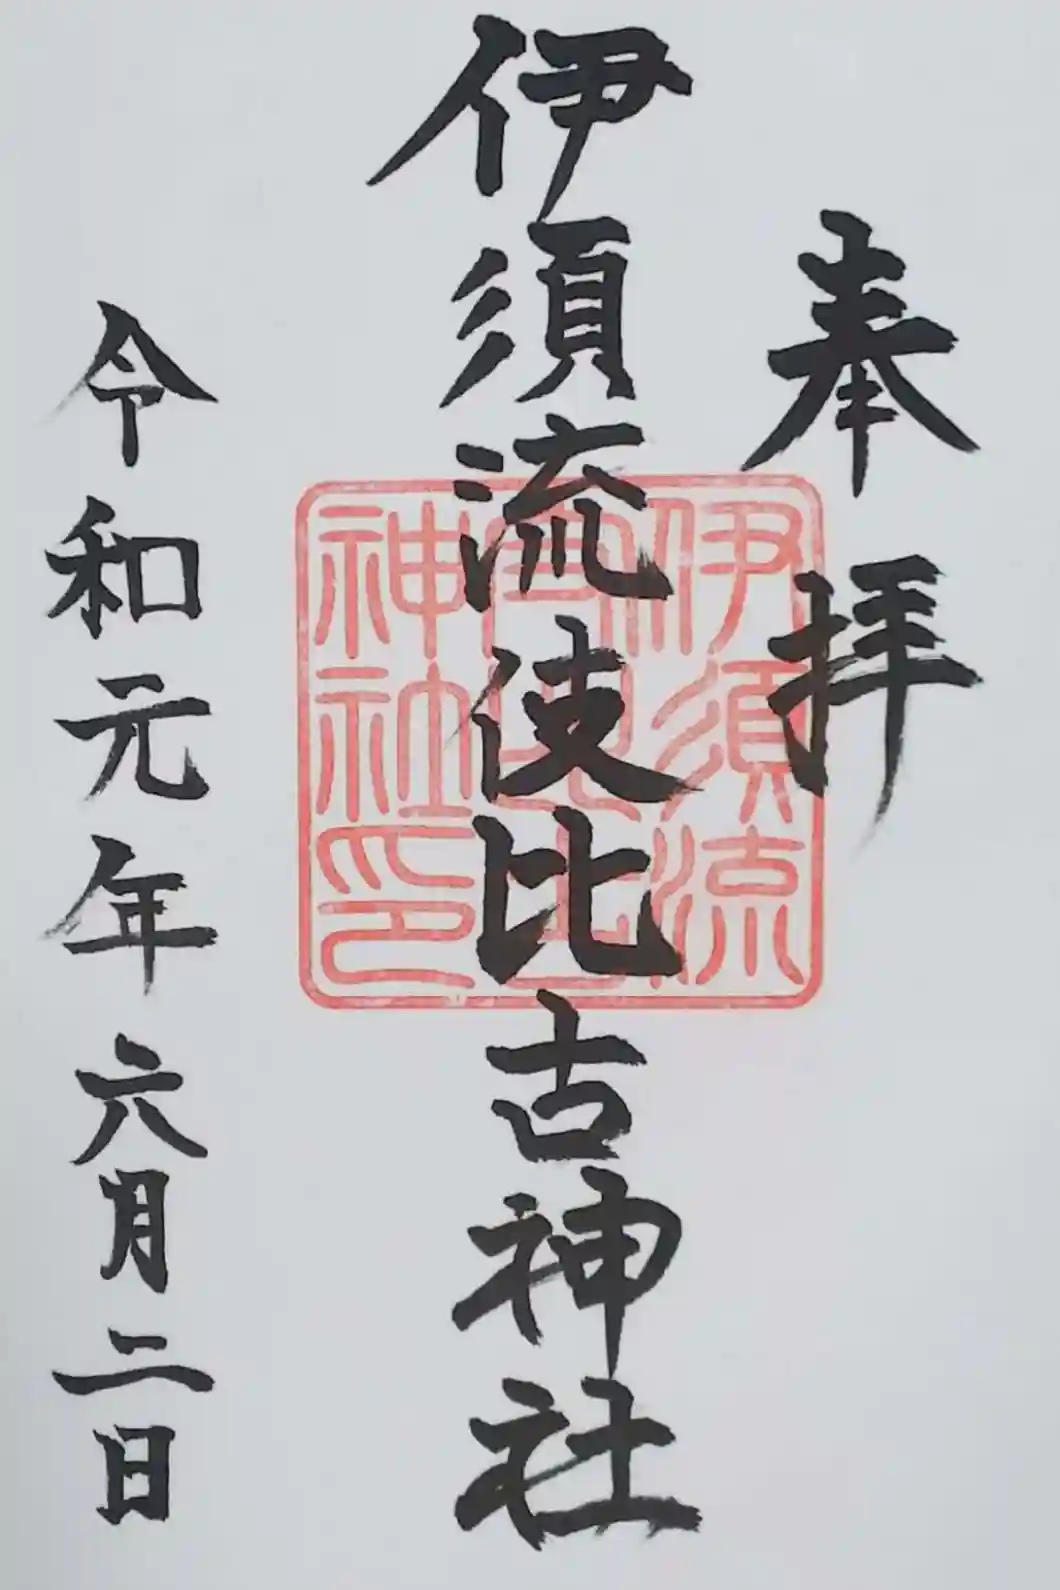 奉拝
伊須流使比古神社
伊須流
神社印
令和元年六月二日